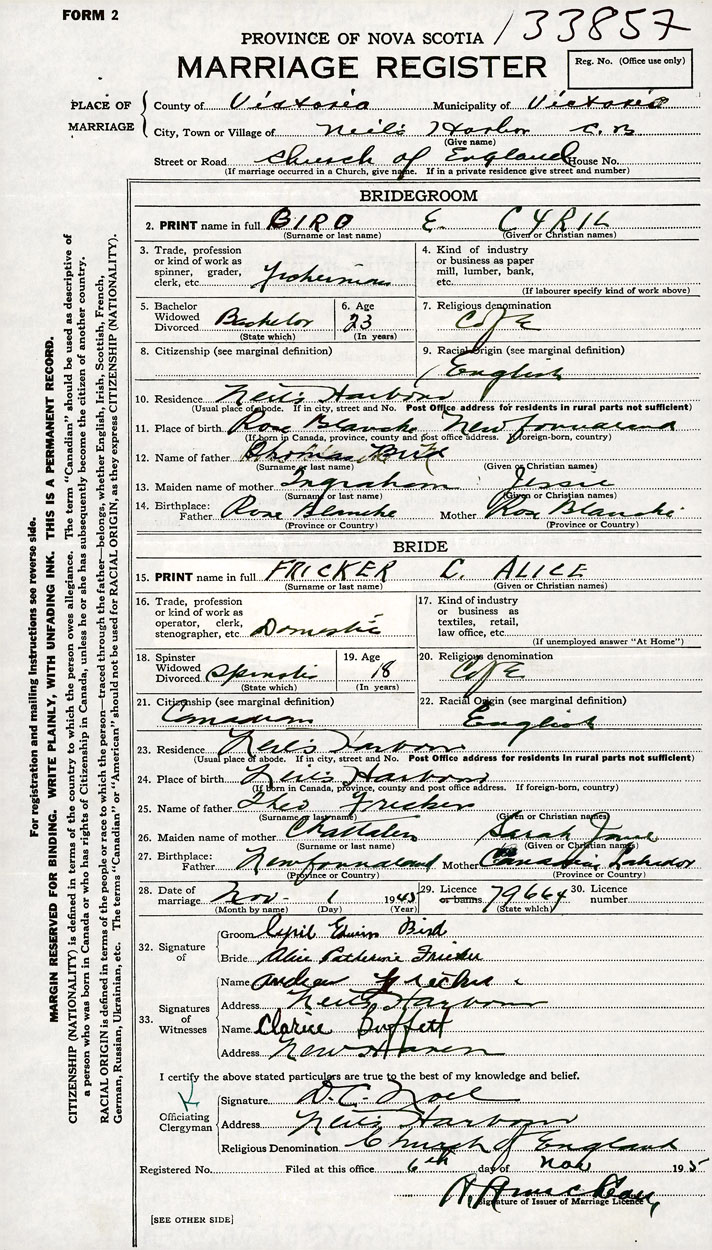 FORM 2
133857
PROVINCE OF NOVA SCOTIA
MARRIAGE REGISTER
Reg. No. (Office use only)
PLACE OF MARRIAGE
County of Victoria Municipality of Victoria
City, Town or Village of Neil's Harbor C. B
(Give name)
Street or Road Church of England House No.
(If marriage occurred in a Church, give name. If in a private residence give street and number)
BRIDEGROOM
2. PRINT name in full BIRD E. CYRIL
(Surname or last name) (Given or Christian names)
3. Trade, profession or kind of work as spinner, grader, clerk, etc. Fisherman
4. Kind of industry or business as paper mill, lumber, bank, etc.
(If labourer specify kind of work above)
5. Bachelor Widowed Divorced Bachelor
(State which)
6. Age 23
(In years)
7. Religious denomination C of E
8. Citizenship (see marginal definition)
9. Racial Origin (see marginal definition)
English
10. Residence Neil's Harbour
(Usual place of abode. If in city, street and No. Post Office address for residents in rural parts not sufficient)
11. Place of birth Rose Blanche Newfoundland
(If born in Canada, province, county and post office address. If foreign-born, country)
12. Name of father Thomas Bird
(Surname or last name) (Given or Christian names)
13. Maiden name of mother Ingraham Jessie
(Surname or last name) (Given or Christian names)
14. Birthplace: Father Rose Blanche Mother Rose Blanche
(Province or Country) (Province or Country)
BRIDE
15. PRINT name in full FRICKER C. ALICE
(Surname or last name) (Given or Christian names)
16. Trade, profession or kind of work as operator, clerk, stenographer, etc. Domestic
17. Kind of industry or business as textiles, retail, law office, etc.
(If unemployed answer "At Home")
18. Spinster Widowed Divorced Spinster
(State which)
19. Age 18
(In years)
20. Religious denomination C of E
21. Citizenship (see marginal definition)
Canadian
22. Racial Origin (see marginal definition)
English
23. Residence Neil's Harbour
(Usual place of abode. If in city, street and No. Post Office address for residents in rural parts not sufficient)
24. Place of birth Neil's Harbour
(If born in Canada, province, county and post office address. If foreign-born, country)
25. Name of father Theo Fricker
(Surname or last name) (Given or Christian names)
26. Maiden name of mother Sarah Jane
(Surname or last name) (Given or Christian names)
27. Birthplace: Father Newfoundland Mother Labrador
(Province or Country) (Province or Country)
28. Date of marriage Nov. 1 19
(Month by name) (Day) (Year)
29. Licence or banns 79664
(State which)
30. Licence number
32. Signature of
Groom Cyril Edwin Bird
Bride Alice Catherine Fricker
33. Signatures of Witnesses
Name Andrew Fricker
Address Neil's Harbour
Name Clarice Buffett
Address New Haven
I certify the above stated particulars are true to the best of my knowledge and belief.
Officiating Clergyman
Signature D. C. Noel
Address Neil's Harbour
Religious Denomination Church of England
Registered No. Filed at this office 6th day of Nov 19
Signature of Issuer of Marriage Licence
[SEE OTHER SIDE]
For registration and mailing instructions see reverse side.
MARGIN RESERVED FOR BINDING. WRITE PLAINLY, WITH UNFADING INK. THIS IS A PERMANENT RECORD.
CITIZENSHIP (NATIONALITY) is defined in terms of the country to which the person owes allegiance. The term "Canadian" should be used as descriptive of
a person who was born in Canada or who has rights of Citizenship in Canada, unless he or she has subsequently become the citizen of another country.
RACIAL ORIGIN is defined in terms of the people or race to which the person—traced through the father—belongs, whether English, Irish, Scottish, French,
German, Russian, Ukrainian, etc. The terms "Canadian" or "American" should not be used for RACIAL ORIGIN, as they express CITIZENSHIP (NATIONALITY).